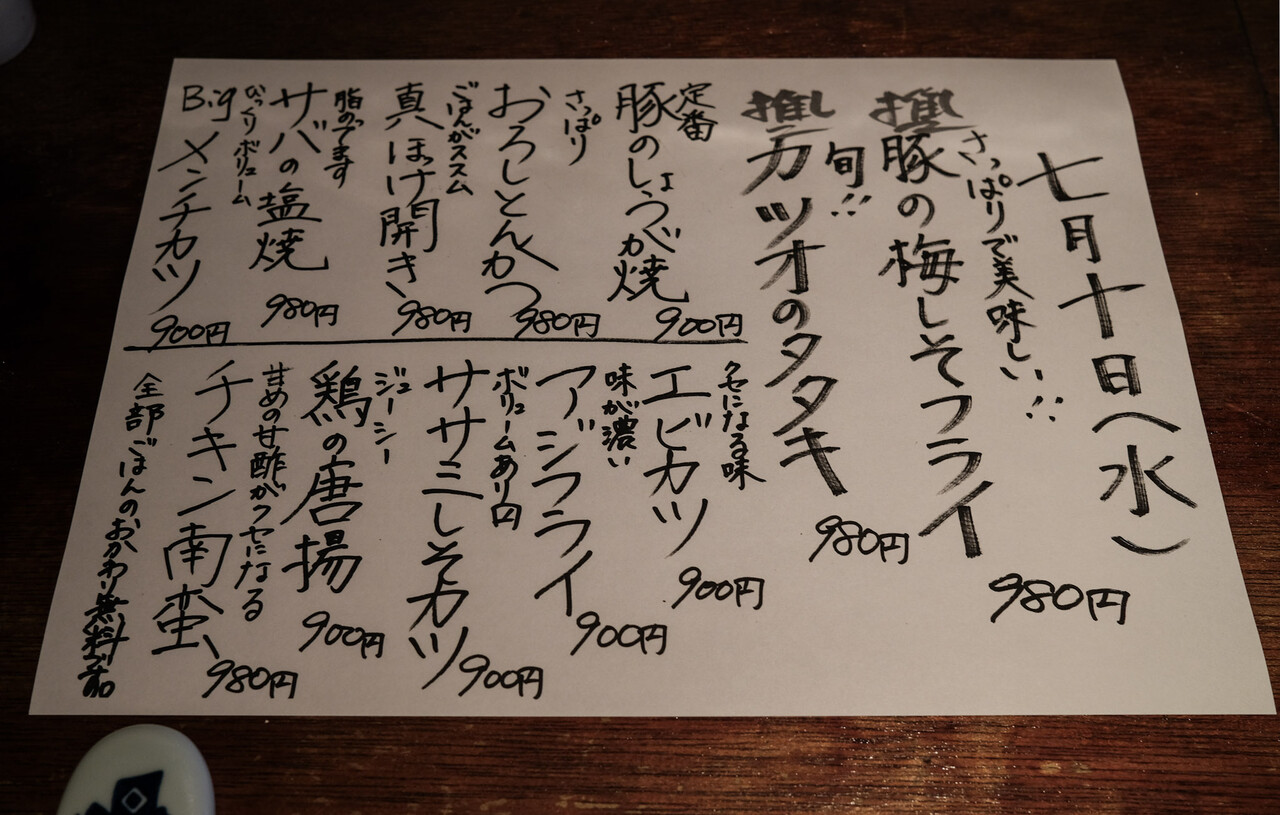 七月十日(水)
さっぱりで美味しい!!
推し
豚の梅しそフライ
980円
旬!!
推し
カツオのタタキ
980円
定番
豚のしょうが焼
900円
さっぱり
おろしとんかつ
980円
ごはんがススム
真ほっけ開き
980円
脂のってます
サバの塩焼
980円
びっくりボリューム
Bigメンチカツ
900円
クセになる味
エビカツ
900円
味が濃い
アジフライ
900円
ボリュームあり円
ササミしそカツ
900円
ジューシー
鶏の唐揚
900円
甘めの甘酢がクセになる
チキン南蛮
980円
全部ごはんのおかわり無料